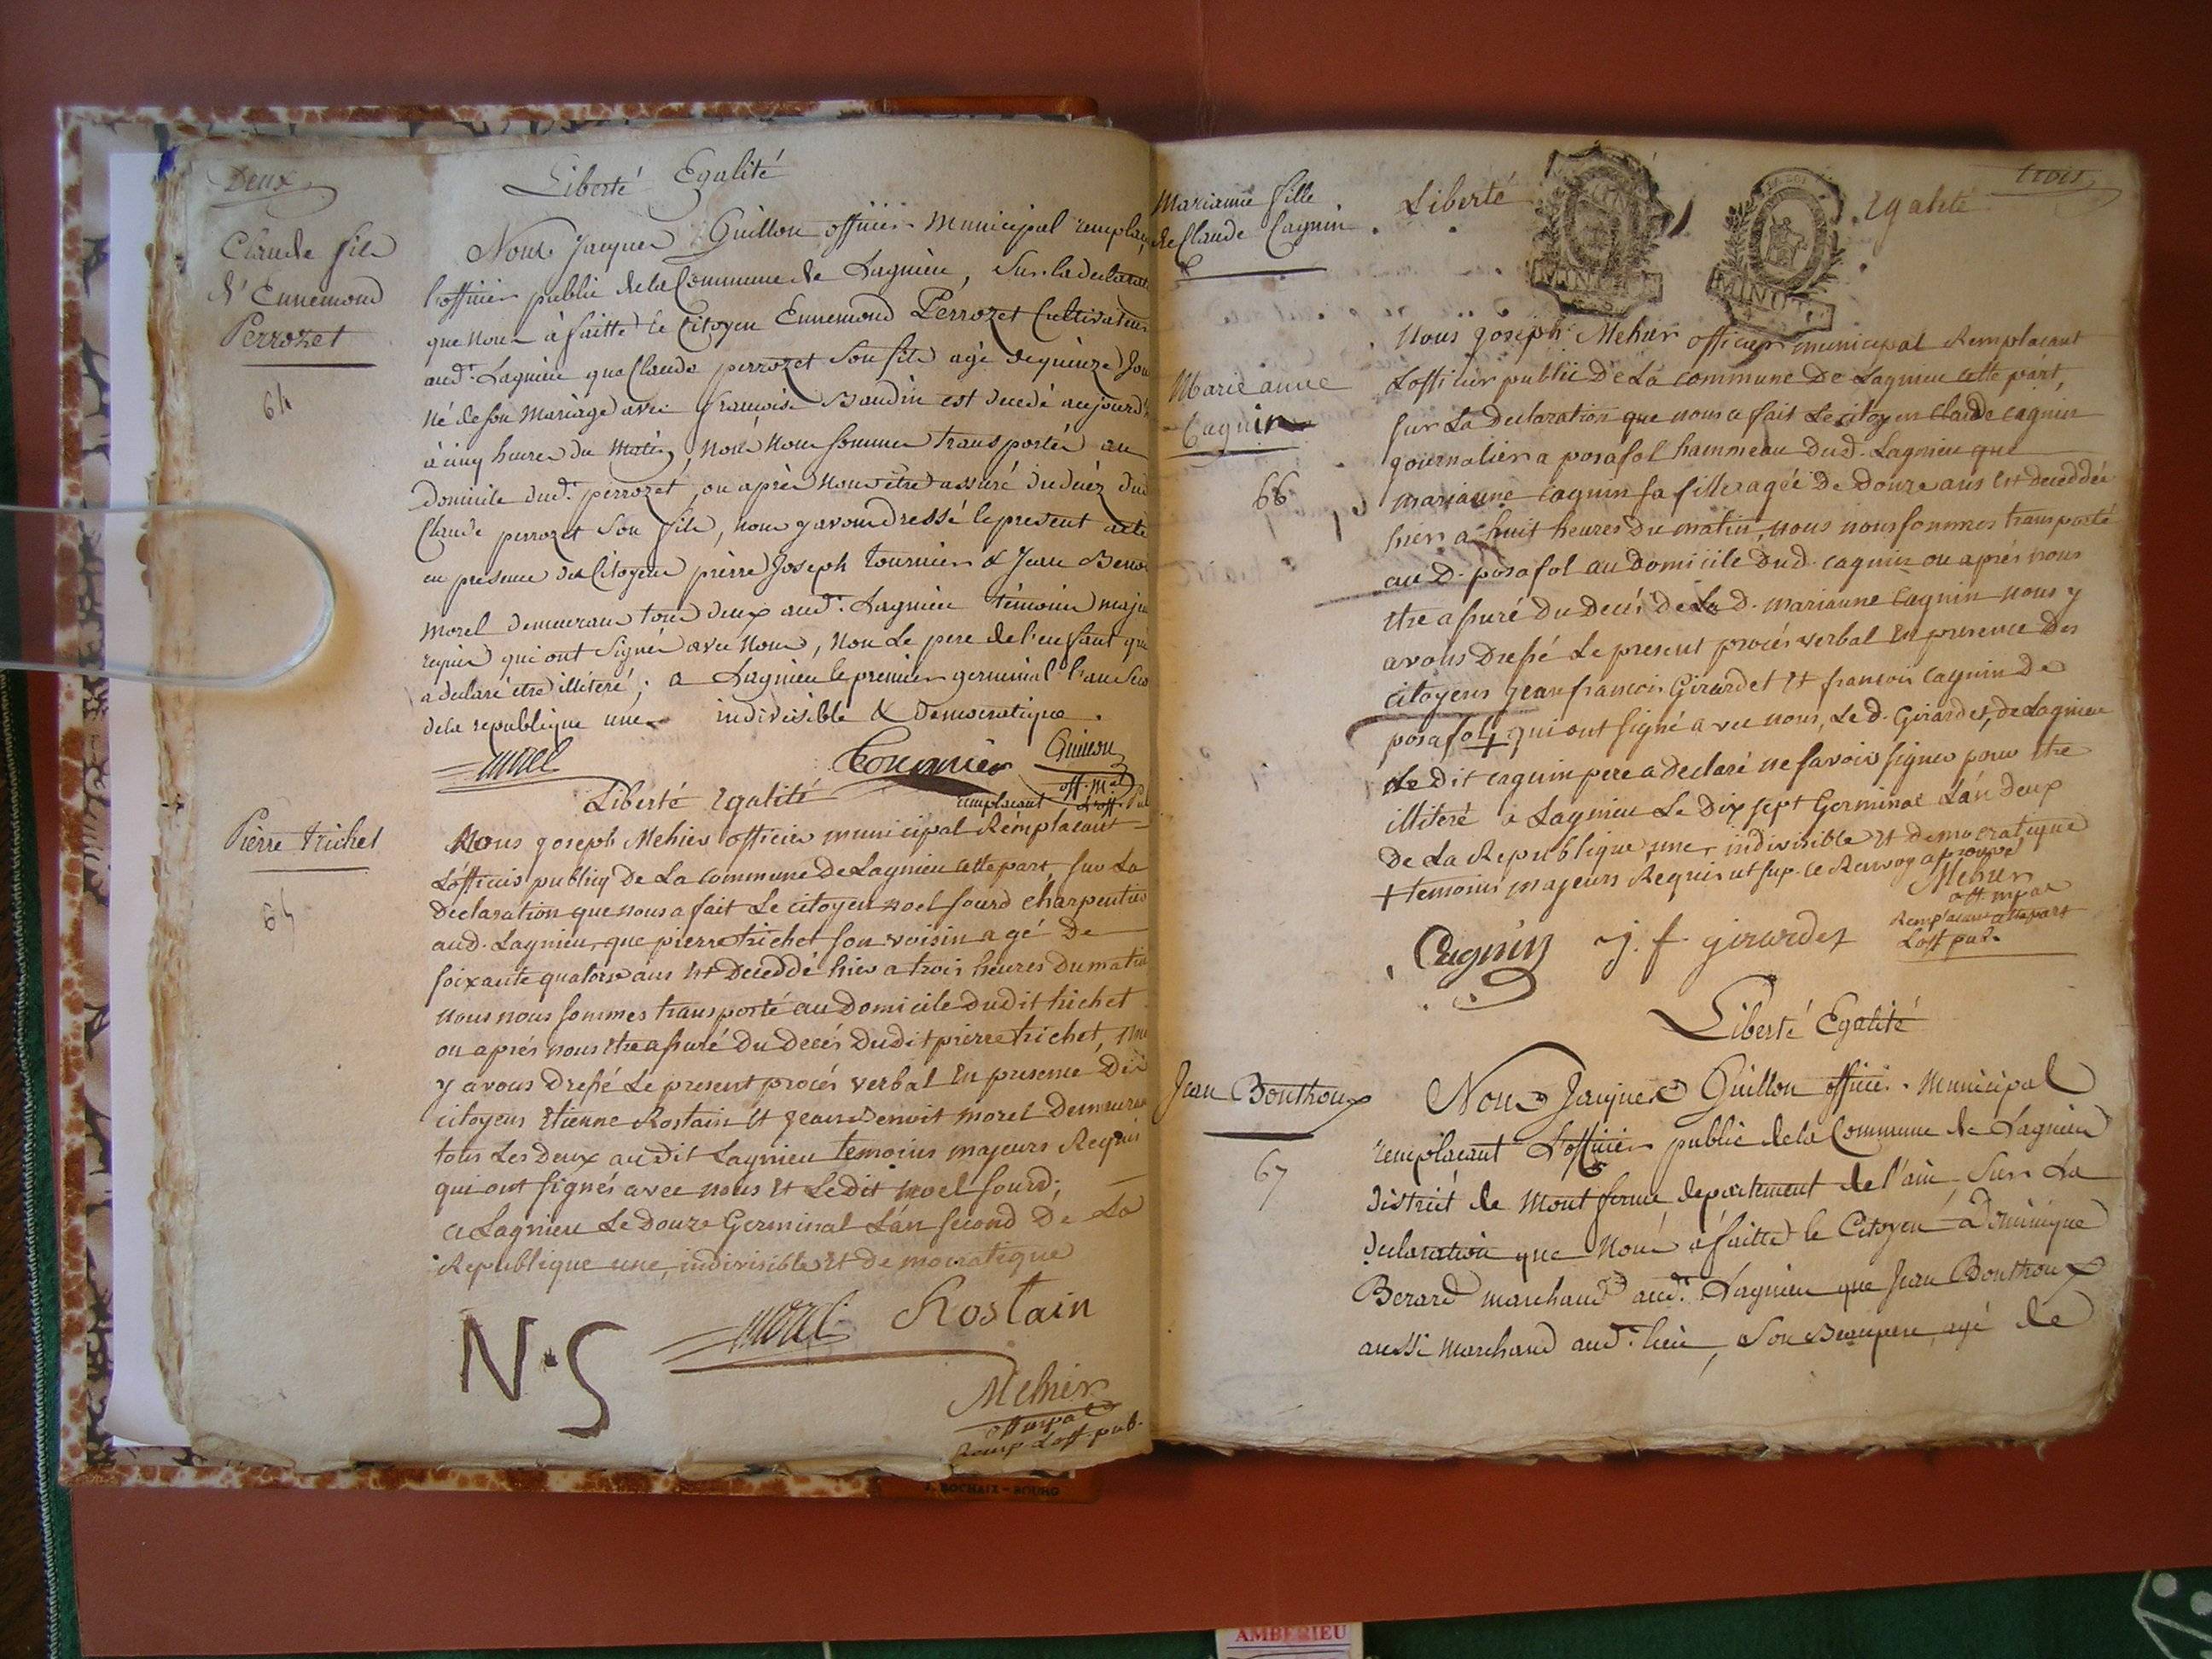 Deux
Liberté Egalité
Claude fils
d'Ennemond
Perrozet
64
Nous Jacques Guillon officier Municipal remplaç
l'officier public de la Commune de Lagnieu, Sur la declarat
que nous à faitte le Citoyen Ennemond Perrozet Cultivateur
aud.t Lagnieu que Claude perrozet Son fils agé de quinze Jou
né de son mariage avec françoise Baudin est decedé aujourd'h
à cinq heures du Matin, nous nous sommes transportés au
Domicile dud.t perrozet, ou après nous être assuré du décéz dud
Claude perrozet Son fils, nous y avons dressé le present acte
en presence des Citoyens pierre Joseph tournier & Jean Beno
morel demeurans tous deux aud.t Lagnieu témoins maju
requis qui ont Signés avec nous, non Le pere de l'enfant qui
a declaré être illiteré; a Lagnieu le premier germinal l'an Seco
de la republique une indivisible & democratique.
morel Tournier Guillon
off. M.al
remplacant L'off. Pub
Liberté Egalité
Pierre trichet
65
Nous joseph Mehier officier municipal Remplacant
L'officier publiq De La commune De Lagnieu cette part, sur La
Declaration que nous a fait Le citoyen noel sourd charpentier
aud. Lagnieu, que pierre trichet son voisin agé De
soixante quatorze ans Est Deceddé hier a trois heures Du matin
nous nous sommes transporté au Domicile Dudit trichet
ou aprés nous Etre assuré Du Decés Dudit pierre trichet, nou
y avons Dressé Le present procés verbal En presence Des
citoyens Etienne Rostain Et jean Benoit morel Demeurans
tous Les Deux audit Lagnieu temoins majeurs Requis
qui ont signés avec nous Et Ledit noel sourd;
a Lagnieu Le Douze Germinal L'an second De La
Republique une, indivisible Et Democratique
N.S morel Rostain
Mehier
off mpal
Remp Loff. pub.
trois
Marianne fille
de Claude Cagnin
Liberté Egalité
LA LOI
MINUTE MINUTE
Marie anne
Cagnin
66
Nous joseph Mehier officier municipal Remplacant
Lofficier public De La commune De Lagnieu cette part,
sur La Declaration que nous a fait Le citoyen Claude cagnin
journalier a posafol hammeau Dud. Lagnieu que
marianne cagnin sa fille agée De Douze ans Est deceddée
hier a huit heures Du matin, nous nous sommes transporté
au D. posafol au Domicile Dud. cagnin ou aprés nous
Etre assuré Du Decés De La D. marianne Cagnin nous y
avons Dressé Le present procés verbal En presence Des
citoyens jean francois Girardet Et francois cagnin De
posafol + qui ont signé avec nous, Le D. Girardet, De Lagnieu
Le Dit cagnin pere a Declaré ne savoir signer pour Etre
illiteré a Lagnieu Le Dix sept Germinal L'an Deux
De La Republique une, indivisible Et Democratique
+ temoins majeurs Requis Le Renvoy aprouvé
Mehier
off. mpal
Remplacant cette part
Loff pub.
Cagnin j. f. girardet
Liberté Egalité
Jean Bouthoux
67
Nous Jacques Guillon officier Municipal
remplaçant L'officier public de la Commune de Lagnieu
District de Montferme, departement de l'ain, Sur La
declaration que nous à faitte le Citoyen Dominique
Berard marchand aud.t Lagnieu que Jean Bouthoux
aussi Marchand aud.t lieu, Son Beaupere, agé de
J. ROCHAIX - BOURG
AMBERIEU